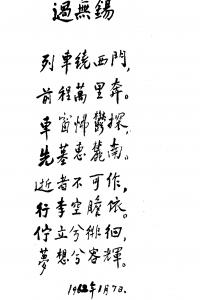 過無錫
列車繞西門,
前程萬里奔。
車窗怵鬱探,
先墓惠麓南。
逝者不可作,
行李空瞻依。
佇立兮徘徊,
夢想兮容輝。
1962年1月7日.